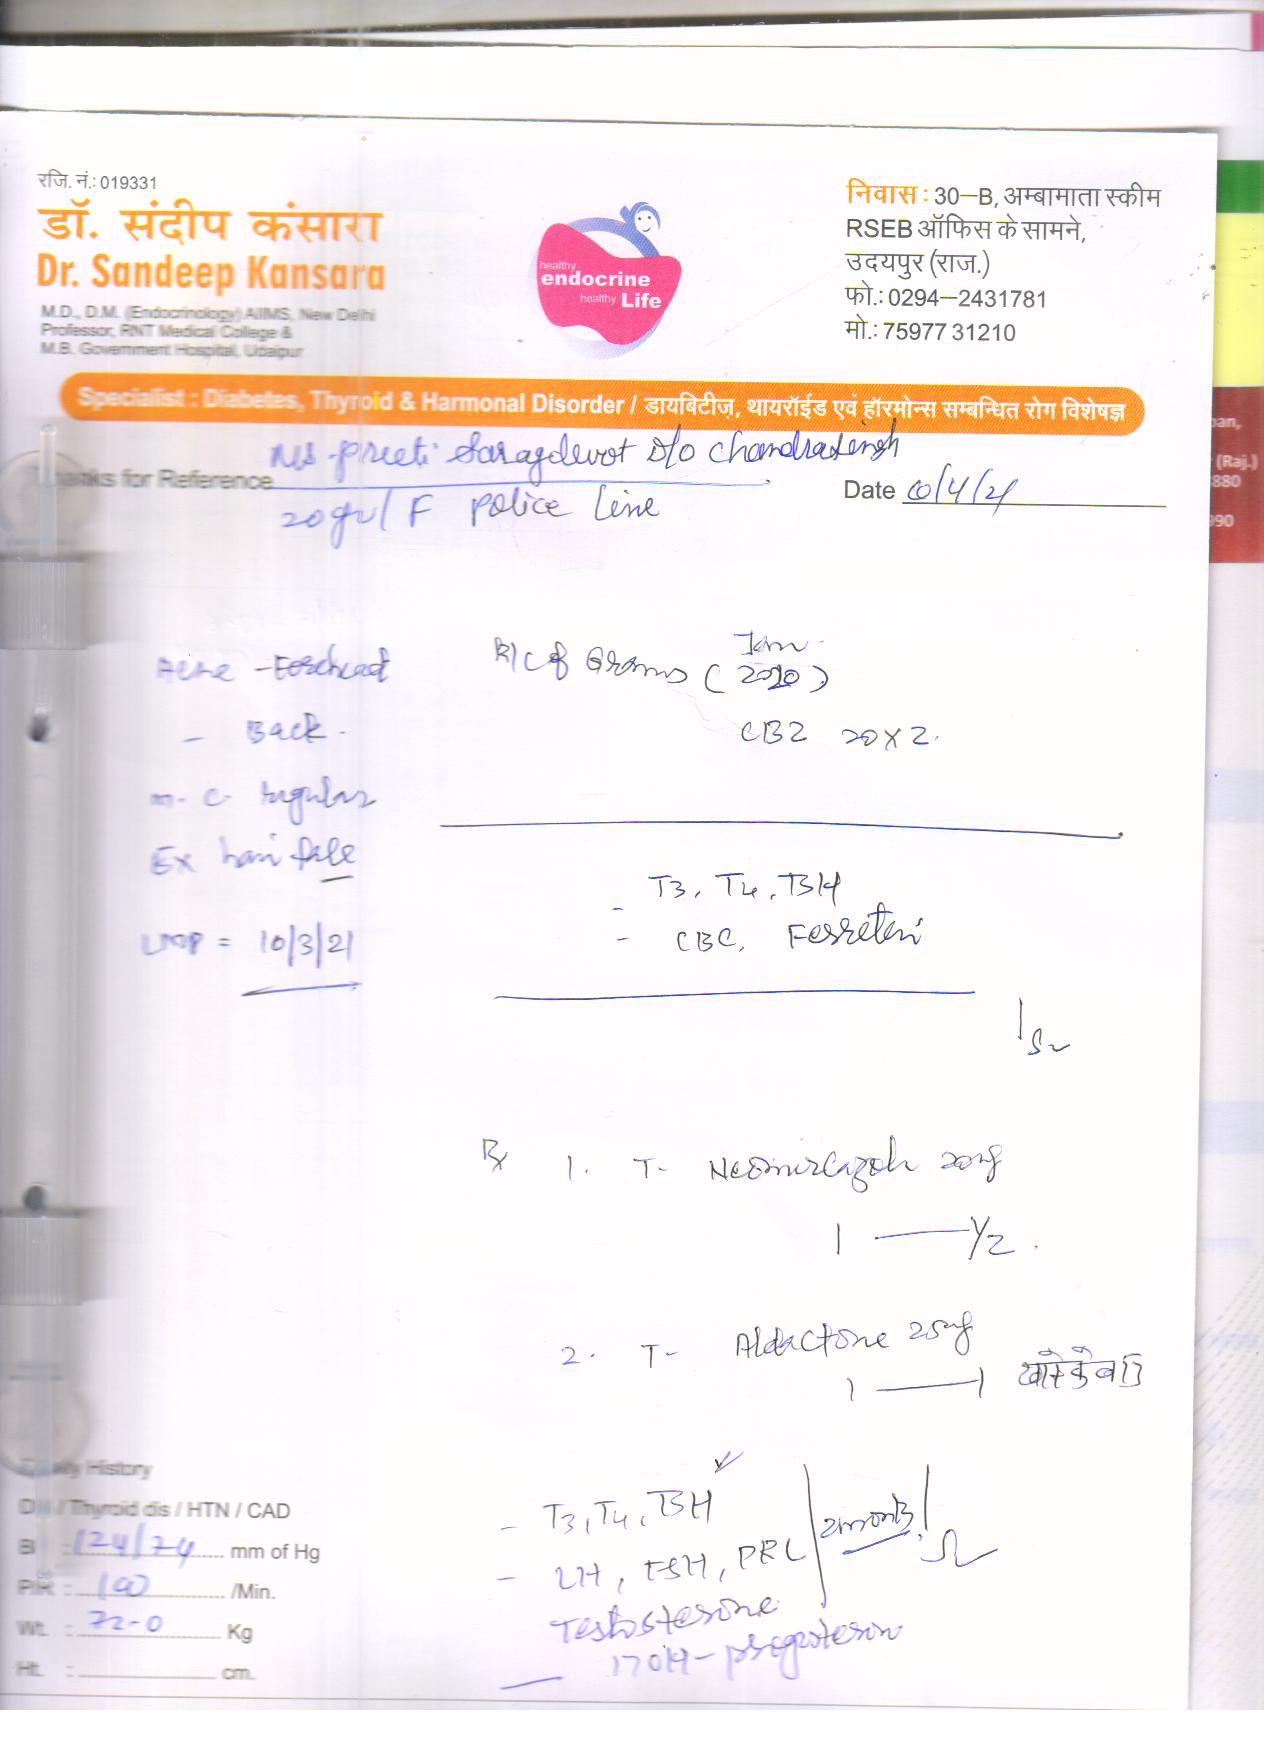 रजि. नं.: 019331
डॉ. संदीप कंसारा
Dr. Sandeep Kansara
M.D., D.M. (Endocrinology) AIIMS, New Delhi
Professor, RNT Medical College &
M.B. Government Hospital, Udaipur
healthy
endocrine
healthy Life
निवास : 30–B, अम्बामाता स्कीम
RSEB ऑफिस के सामने,
उदयपुर (राज.)
फो.: 0294–2431781
मो.: 75977 31210
Specialist : Diabetes, Thyroid & Harmonal Disorder / डायबिटीज, थायरॉईड एवं हॉरमोन्स सम्बन्धित रोग विशेषज्ञ
Ms Preeti Saragdevot D/o Chandrasingh
Thanks for Reference
Date 10/4/21
/ F Police Line
Acne - Forehead
- Back
m. c. regular
Ex hair fall
LMP = 10/3/21
Jan
(2020)
CBZ 20 X 2
- T3, T4, TSH
- CBC, Ferreten
Rx 1. T- Neomercazole 20mg
1 — 1/2
2. T- Aldactone 25mg
1 — 1
- T3, T4, TSH
- LH, FSH, PRL
2 month
Testosterone
17OH-
Family History
DM / Thyroid dis / HTN / CAD
124/74 mm of Hg
100 /Min.
Wt. : 72-0 Kg
Ht. : cm.
(Raj.)
880
990